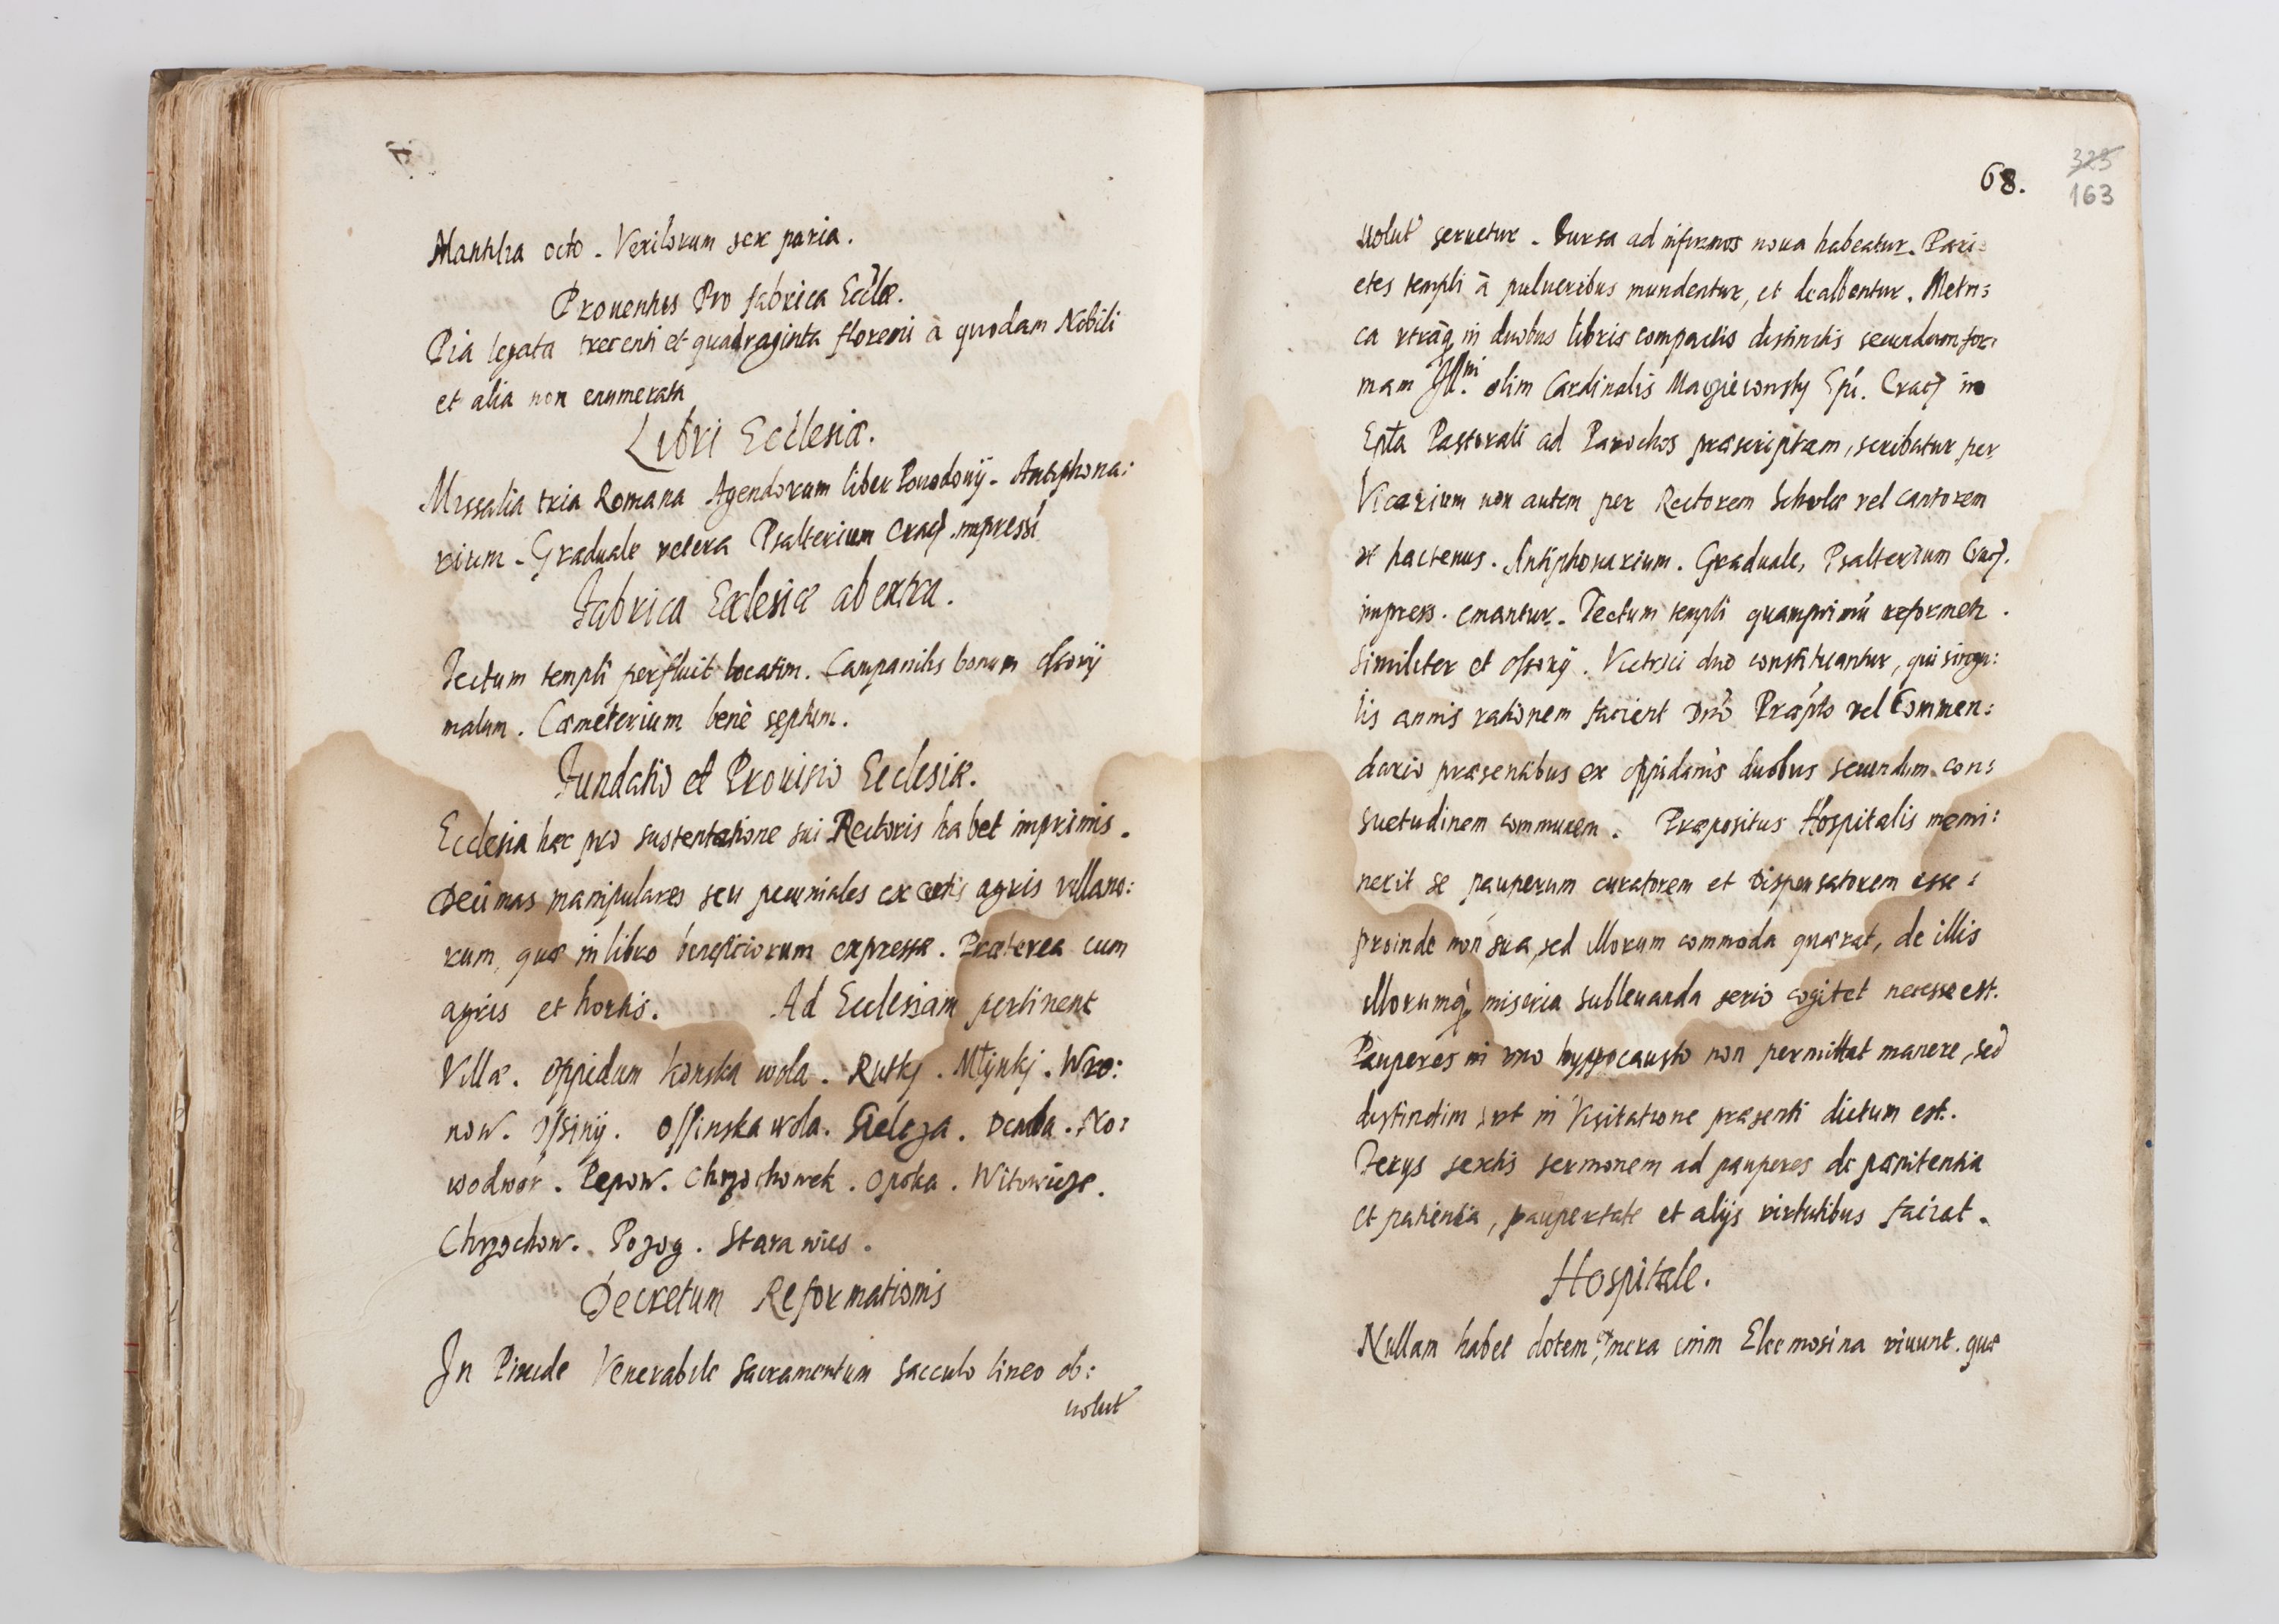 Mantilia octo. Vexilorum sex paria.
Prouentus Pro fabrica Eccłae.
Pia legata trecenti et quadraginta floreni à quodam Nobili
et alia non enumerata
Libri Ecclesiæ.
Missalia tria Romana Agendorum liber Powodowij. Antiphona:
rium. Graduale vetera Psalterium Crac. impressi
Fabrica Ecclesiæ ab extra.
Tectum templi perfluit locatim. Campanilis bonum Ossorij
malum. Cæmeterium benè septum.
Fundatio et Prouisio Ecclesiæ.
Ecclesia hæc pro sustentatione sui Rectoris habet imprimis.
Decimas manipulares seu pecuniales ex certis agris villano:
rum, quæ in libro beneficiorum expressæ. Præterea cum
agris et hortis. Ad Ecclesiam pertinent
Villæ. Oppidum Konska wola. Rutkj. Młynkj. Wro:
now. Ossiny. Ossinska wola. Sielcza. Demba. No:
wodwor. Pepow. Chrzochowek. Opoka. Witowicze.
Chrzochow. Pozog. Stara wies.
Decretum Reformationis
In Pixide Venerabile Sacramentum sacculo lineo ob:
uolut
68.
323
163
uolut seruetur. Bursa ad infirmos noua habeatur. Pari:
etes templi à pulueribus mundentur, et dealbentur. Metri:
ca vtraq in duobus libris compactis distinctis secundum for:
mam Illmi. olim Cardinalis Macieiowsky Epi. Crac in
Epta Pastorali ad Parochos præscriptam, scribatur per
Vicarium non autem per Rectorem Scholæ vel Cantorem
vt hactenus. Antiphonarium. Graduale, Psalterium Crac.
impress. emantur. Tectum templi quamprimu reformetr.
Similiter et Ossorij. Vitrici duo constituantur, qui singu:
lis annis rationem facient Dno Præpto vel Commen:
dario præsentibus ex oppidanis duobus secundum con:
suetudinem communem. Præpositus Hospitalis memi:
nerit se pauperum curatorem et Dispensatorem esse:
proinde non sua, sed illorum commoda quærat, de illis
illorumq miseria subleuanda serio cogitet necesse est.
Pauperes in vno hyppocausto non permittat manere, sed
distinctim, vt in Visitatione præsenti dictum est.
Ferijs sextis sermonem ad pauperes de pænitentia
et patientia, paupertate et alijs virtutibus faciat.
Hospitale.
Nullam habet dotem, ex mera enim Eleemosina viuunt. quæ